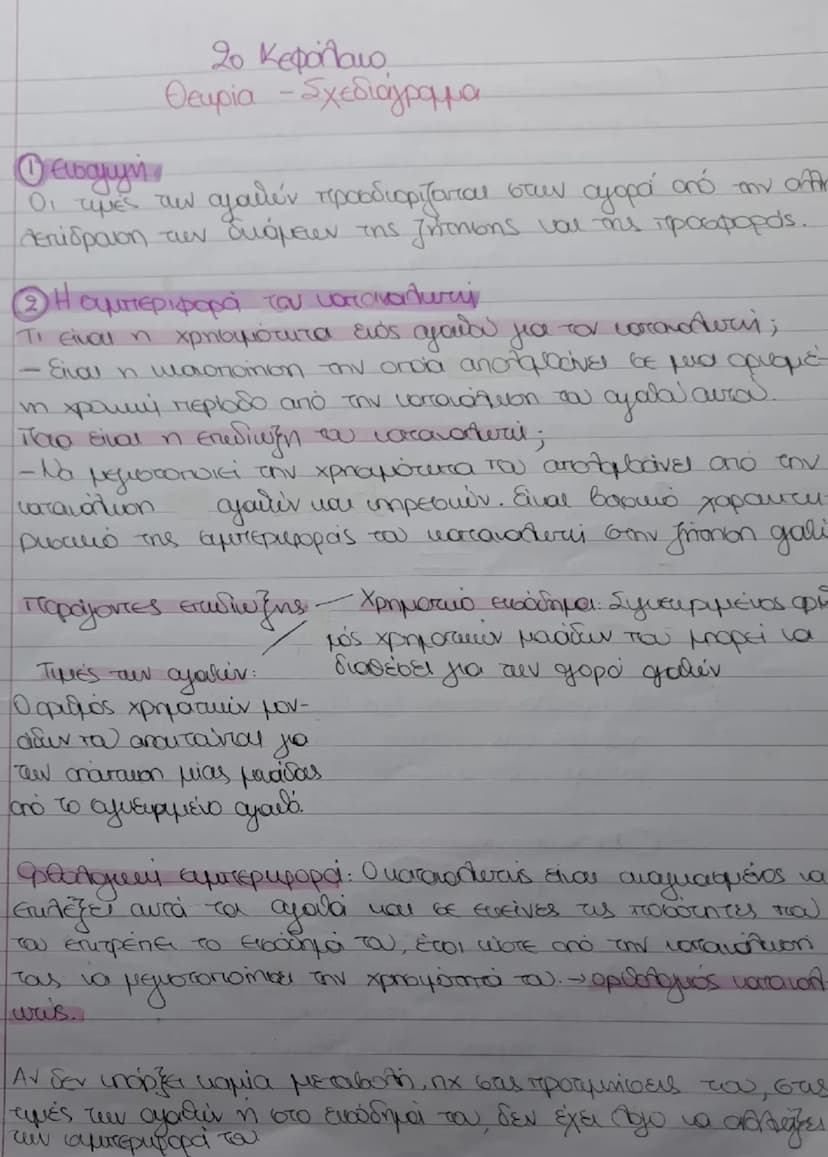 2ο Κεφάλαιο
Θεωρία - Σχεδιάγραμμα
① Εισαγωγή
Οι τιμές των αγαθών προσδιορίζονται στην αγορά από την αλλη-
λεπίδραση των δυνάμεων της ζήτησης και της προσφοράς.
② Η συμπεριφορά του καταναλωτή
Τι είναι η χρησιμότητα ενός αγαθού για τον καταναλωτή;
- Είναι η ικανοποίηση την οποία απολαμβάνει σε μια ορισμέ-
νη χρονική περίοδο από την κατανάλωση του αγαθού αυτού.
Ποια είναι η επιδίωξη του καταναλωτή;
- Να μεγιστοποιεί την χρησιμότητα που απολαμβάνει από την
κατανάλωση αγαθών και υπηρεσιών. Είναι βασικό χαρακτη-
ριστικό της συμπεριφοράς του καταναλωτή στην ζήτηση
Παράγοντες επιδίωξης — Χρηματικό εισόδημα: Συγκεκριμένος αριθ-
μός χρηματικών μονάδων που μπορεί να
Τιμές των αγαθών: διαθέσει για την αγορά αγαθών
Ο αριθμός χρηματικών μον-
άδων που απαιτούνται για
την απόκτηση μίας μονάδας
από το συγκεκριμένο αγαθό.
Ορθολογική συμπεριφορά: Ο καταναλωτής είναι αναγκασμένος να
επιλέξει αυτά τα αγαθά και σε εκείνες τις ποσότητες που
του επιτρέπει το εισόδημά του, έτσι ώστε από την κατανάλωσή
τους να μεγιστοποιήσει την χρησιμότητά του. → ορθολογικός καταναλ-
ωτής.
Αν δεν υπάρξει καμία μεταβολή, πχ στις προτιμήσεις του, στις
τιμές των αγαθών ή στο εισόδημά του, δεν έχει λόγο να αλλάξει
την συμπεριφορά του